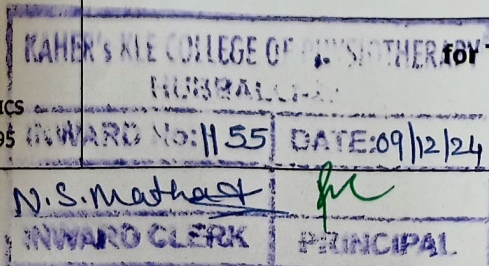 KAHER's KLE COLLEGE OF PHYSIOTHERAPY for
HUBBALLI
ICS
05 INWARD No: 1155 DATE: 09/12/24
INWARD CLERK PRINCIPAL